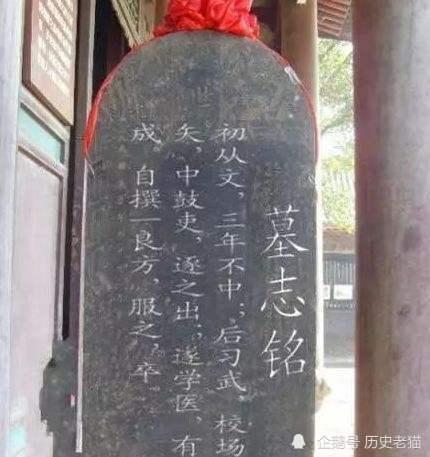 墓志铭
初从文，三年不中；后习武，校场
矢，中鼓吏，逐之出；遂学医，有
成 自撰一良方，服之，卒
企鹅号 历史老猫